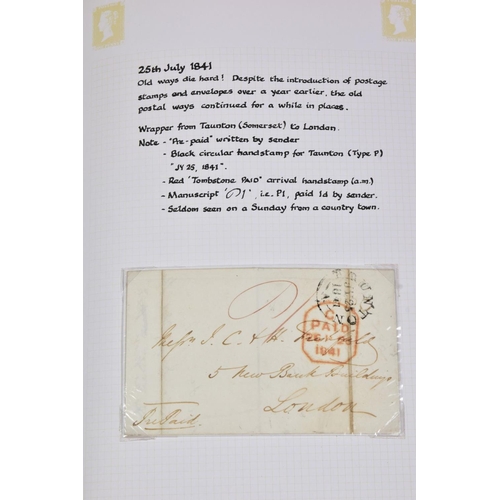 25th July 1841
Old ways die hard! Despite the introduction of postage
stamps and envelopes over a year earlier, the old
postal ways continued for a while in places.
Wrapper from Taunton (Somerset) to London.
Note - "Pre-paid" written by sender
- Black circular handstamp for Taunton (Type P)
"JY 25, 1841".
- Red "Tombstone PAID" arrival handstamp (a.m.)
- Manuscript "P1", i.e. P1, paid 1d by sender.
- Seldom seen on a Sunday from a country town.
PAID
1841
Messrs J. C. & H.
5 New Bank Buildings
London
PrePaid